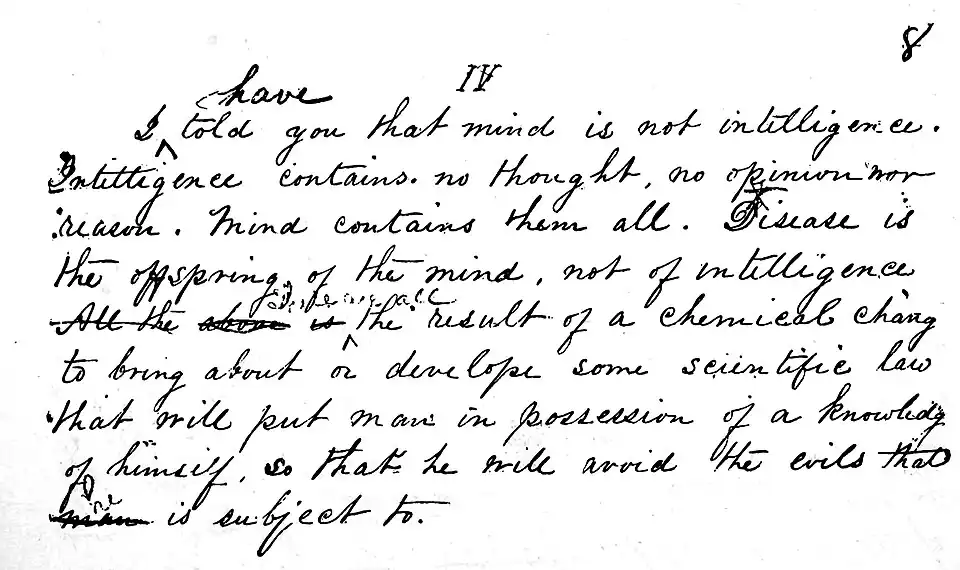 8
IV
have
I ^ told you that mind is not intelligence.
Intelligence contains no thought, no opinion nor
reason. Mind contains them all. Disease is
the offspring of the mind, not of intelligence
All the above is ^ the result of a chemical chang
to bring about or develope some scientific law
that will put man in possession of a knowledg
of himself, so that he will avoid the evils that
he
man is subject to.